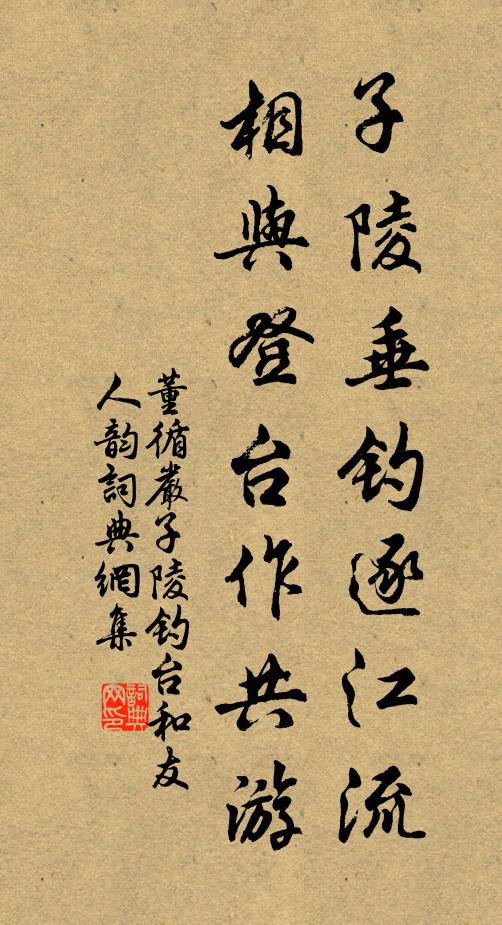 子陵垂钓逐江流
相與登台作共游
董循嚴子陵钓台和友
人韵詞典網集
詞典
网印